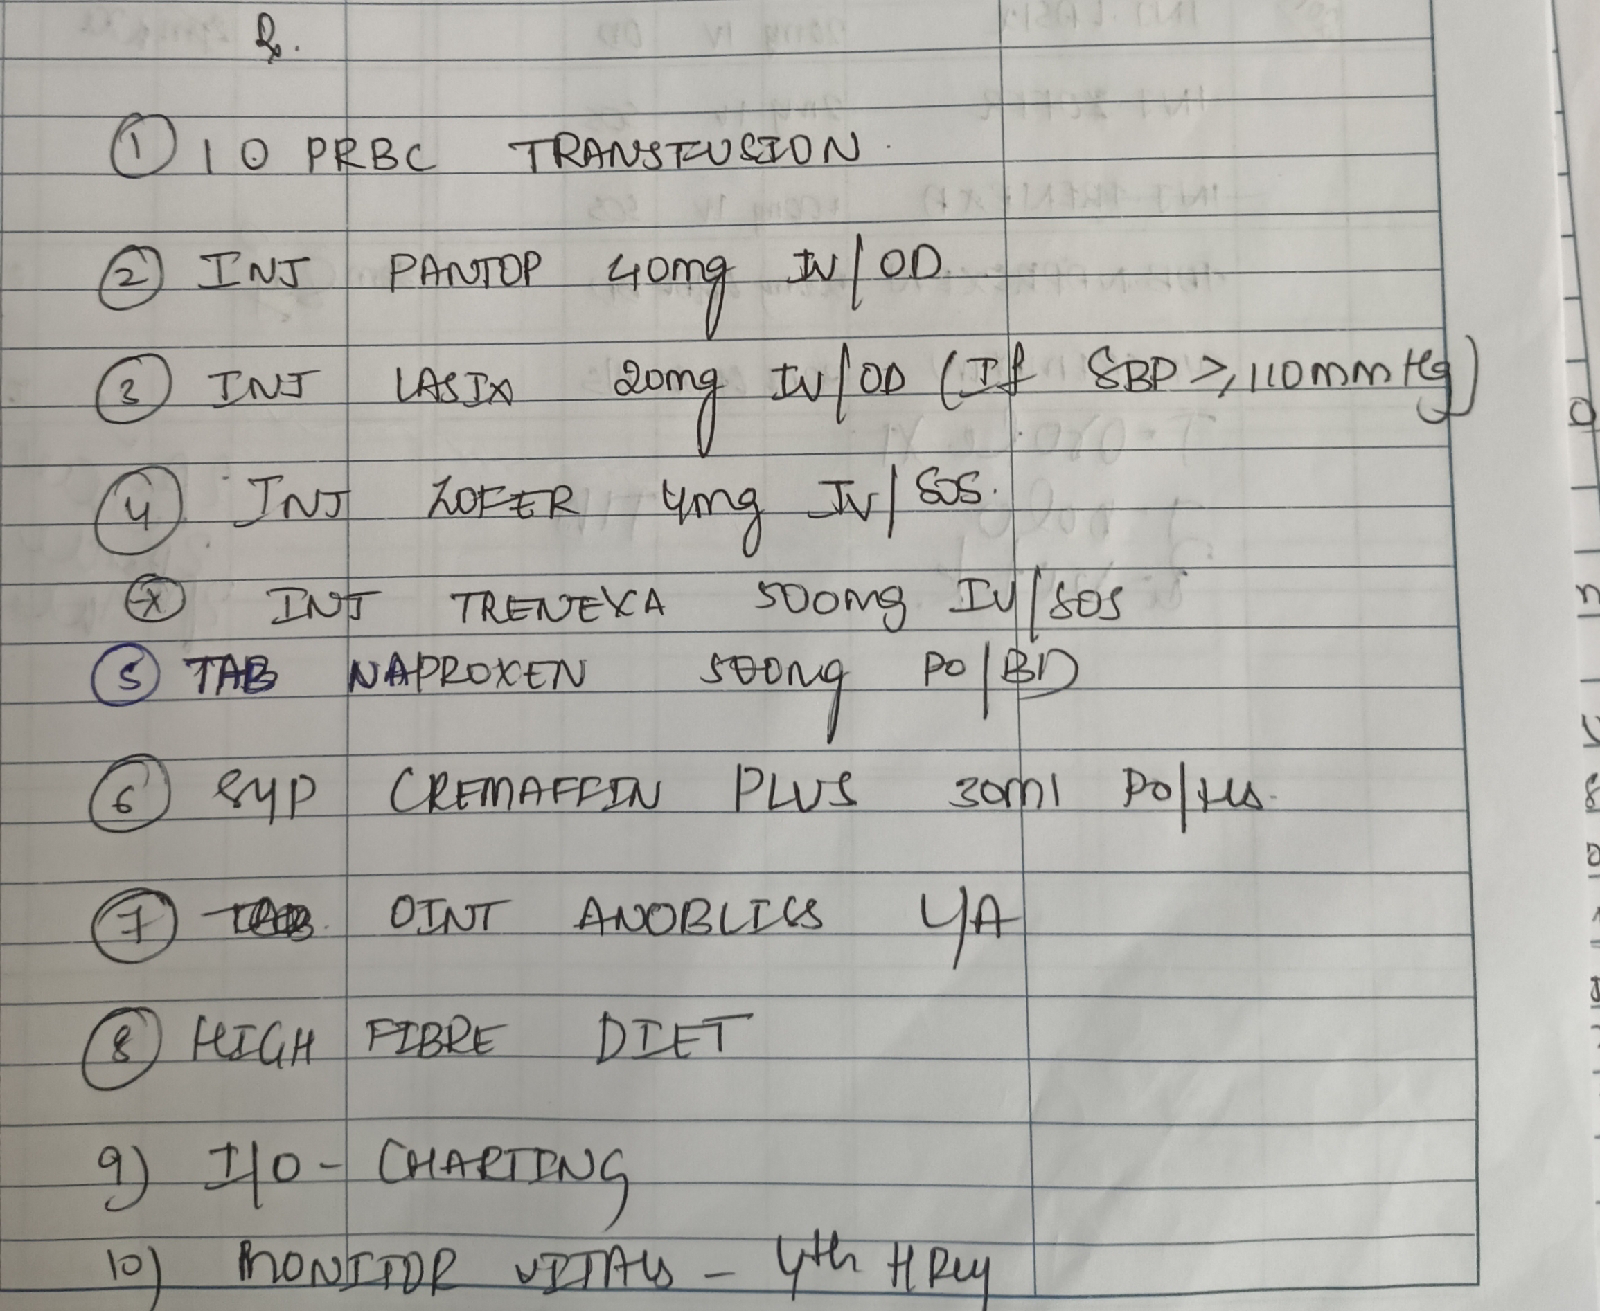 Rx.
① 1 O PRBC TRANSFUSION.
② INJ PANTOP 40mg IV/OD
③ INJ LASIX 20mg IV/OD (If SBP ≥110mmHg)
④ INJ ZOFER 4mg IV/SOS.
INJ TRENEXA 500mg IV/SOS
⑤ TAB NAPROXEN 500mg PO/BD
⑥ SYP CREMAFFIN PLUS 30ml PO/HS.
⑦ OINT ANOBLISS L/A
⑧ HIGH FIBRE DIET
9) I/O - CHARTING
10) MONITOR VITALS - 4th HRLY